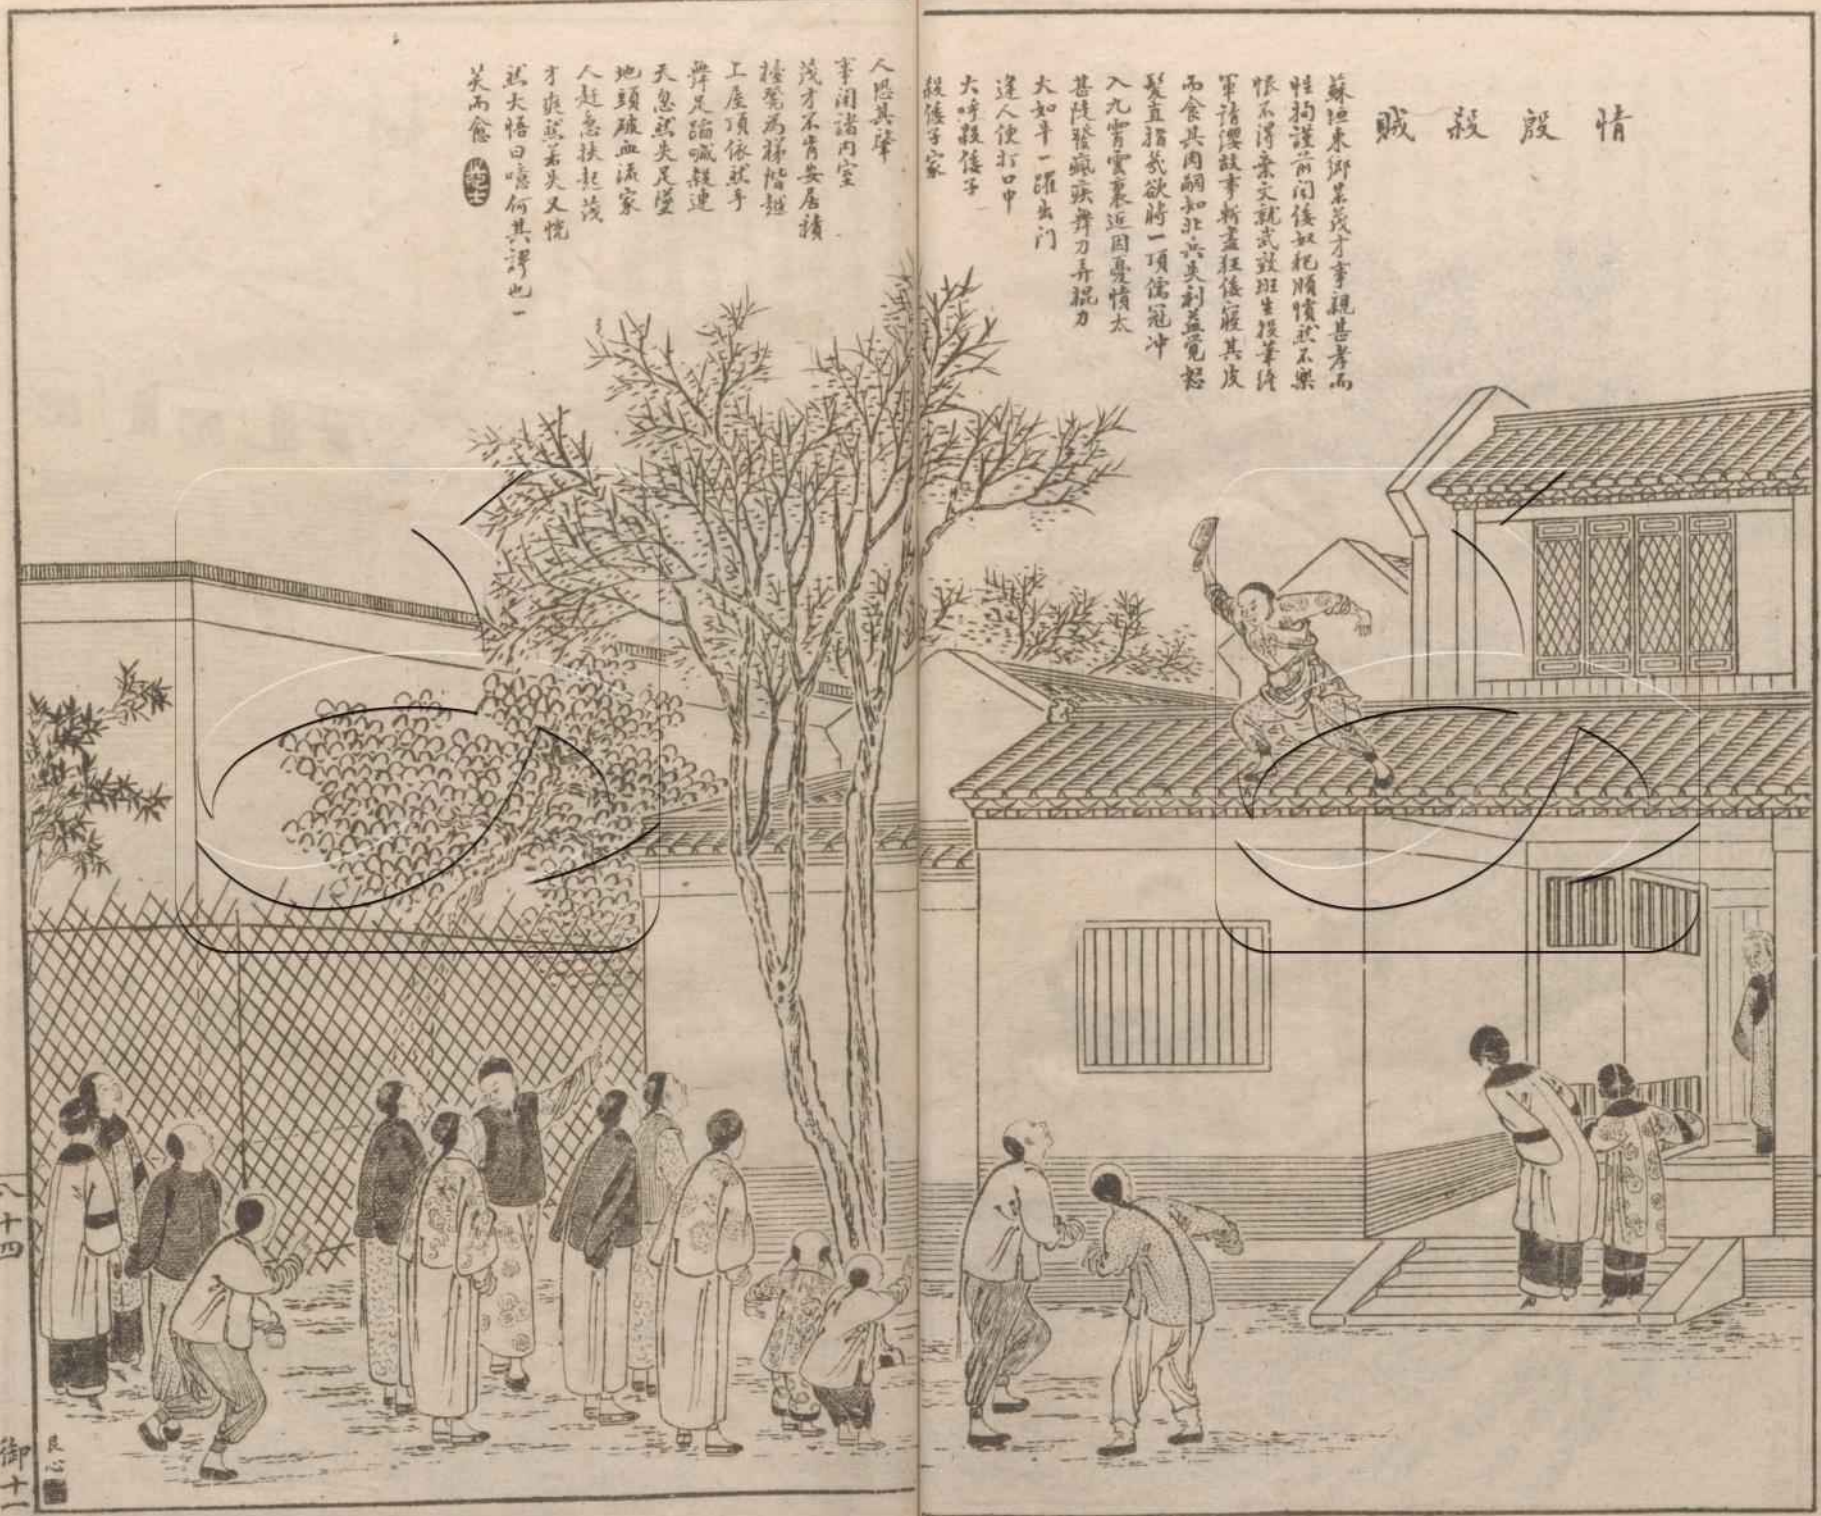 情殷殺賊
蘇垣東鄉某茂才事親甚孝而
性拘謹前聞倭奴犯順憤然不樂
恨不得棄文就武效班生投筆終
軍請纓故事斬盡狂倭寢其皮
而食其肉嗣知北兵失利益覺怒
髮直指幾欲將一頂儒冠冲
入九霄雲裏近因憂憤太
甚陡發瘋疾舞刀弄棍力
大如牛一躍出门
逢人便打口中
大呼殺倭子
殺倭子家
人恐其肇
事闭諸内室
茂才不肯安居積
檯凳為梯階越
上屋頂依然手
舞足蹈喊殺連
天忽然失足墜
地頭破血流家
人赶急扶起茂
才爽然若失又恍
然大悟曰噫何其謬也一
笑而愈
八十四
御十一
艮心